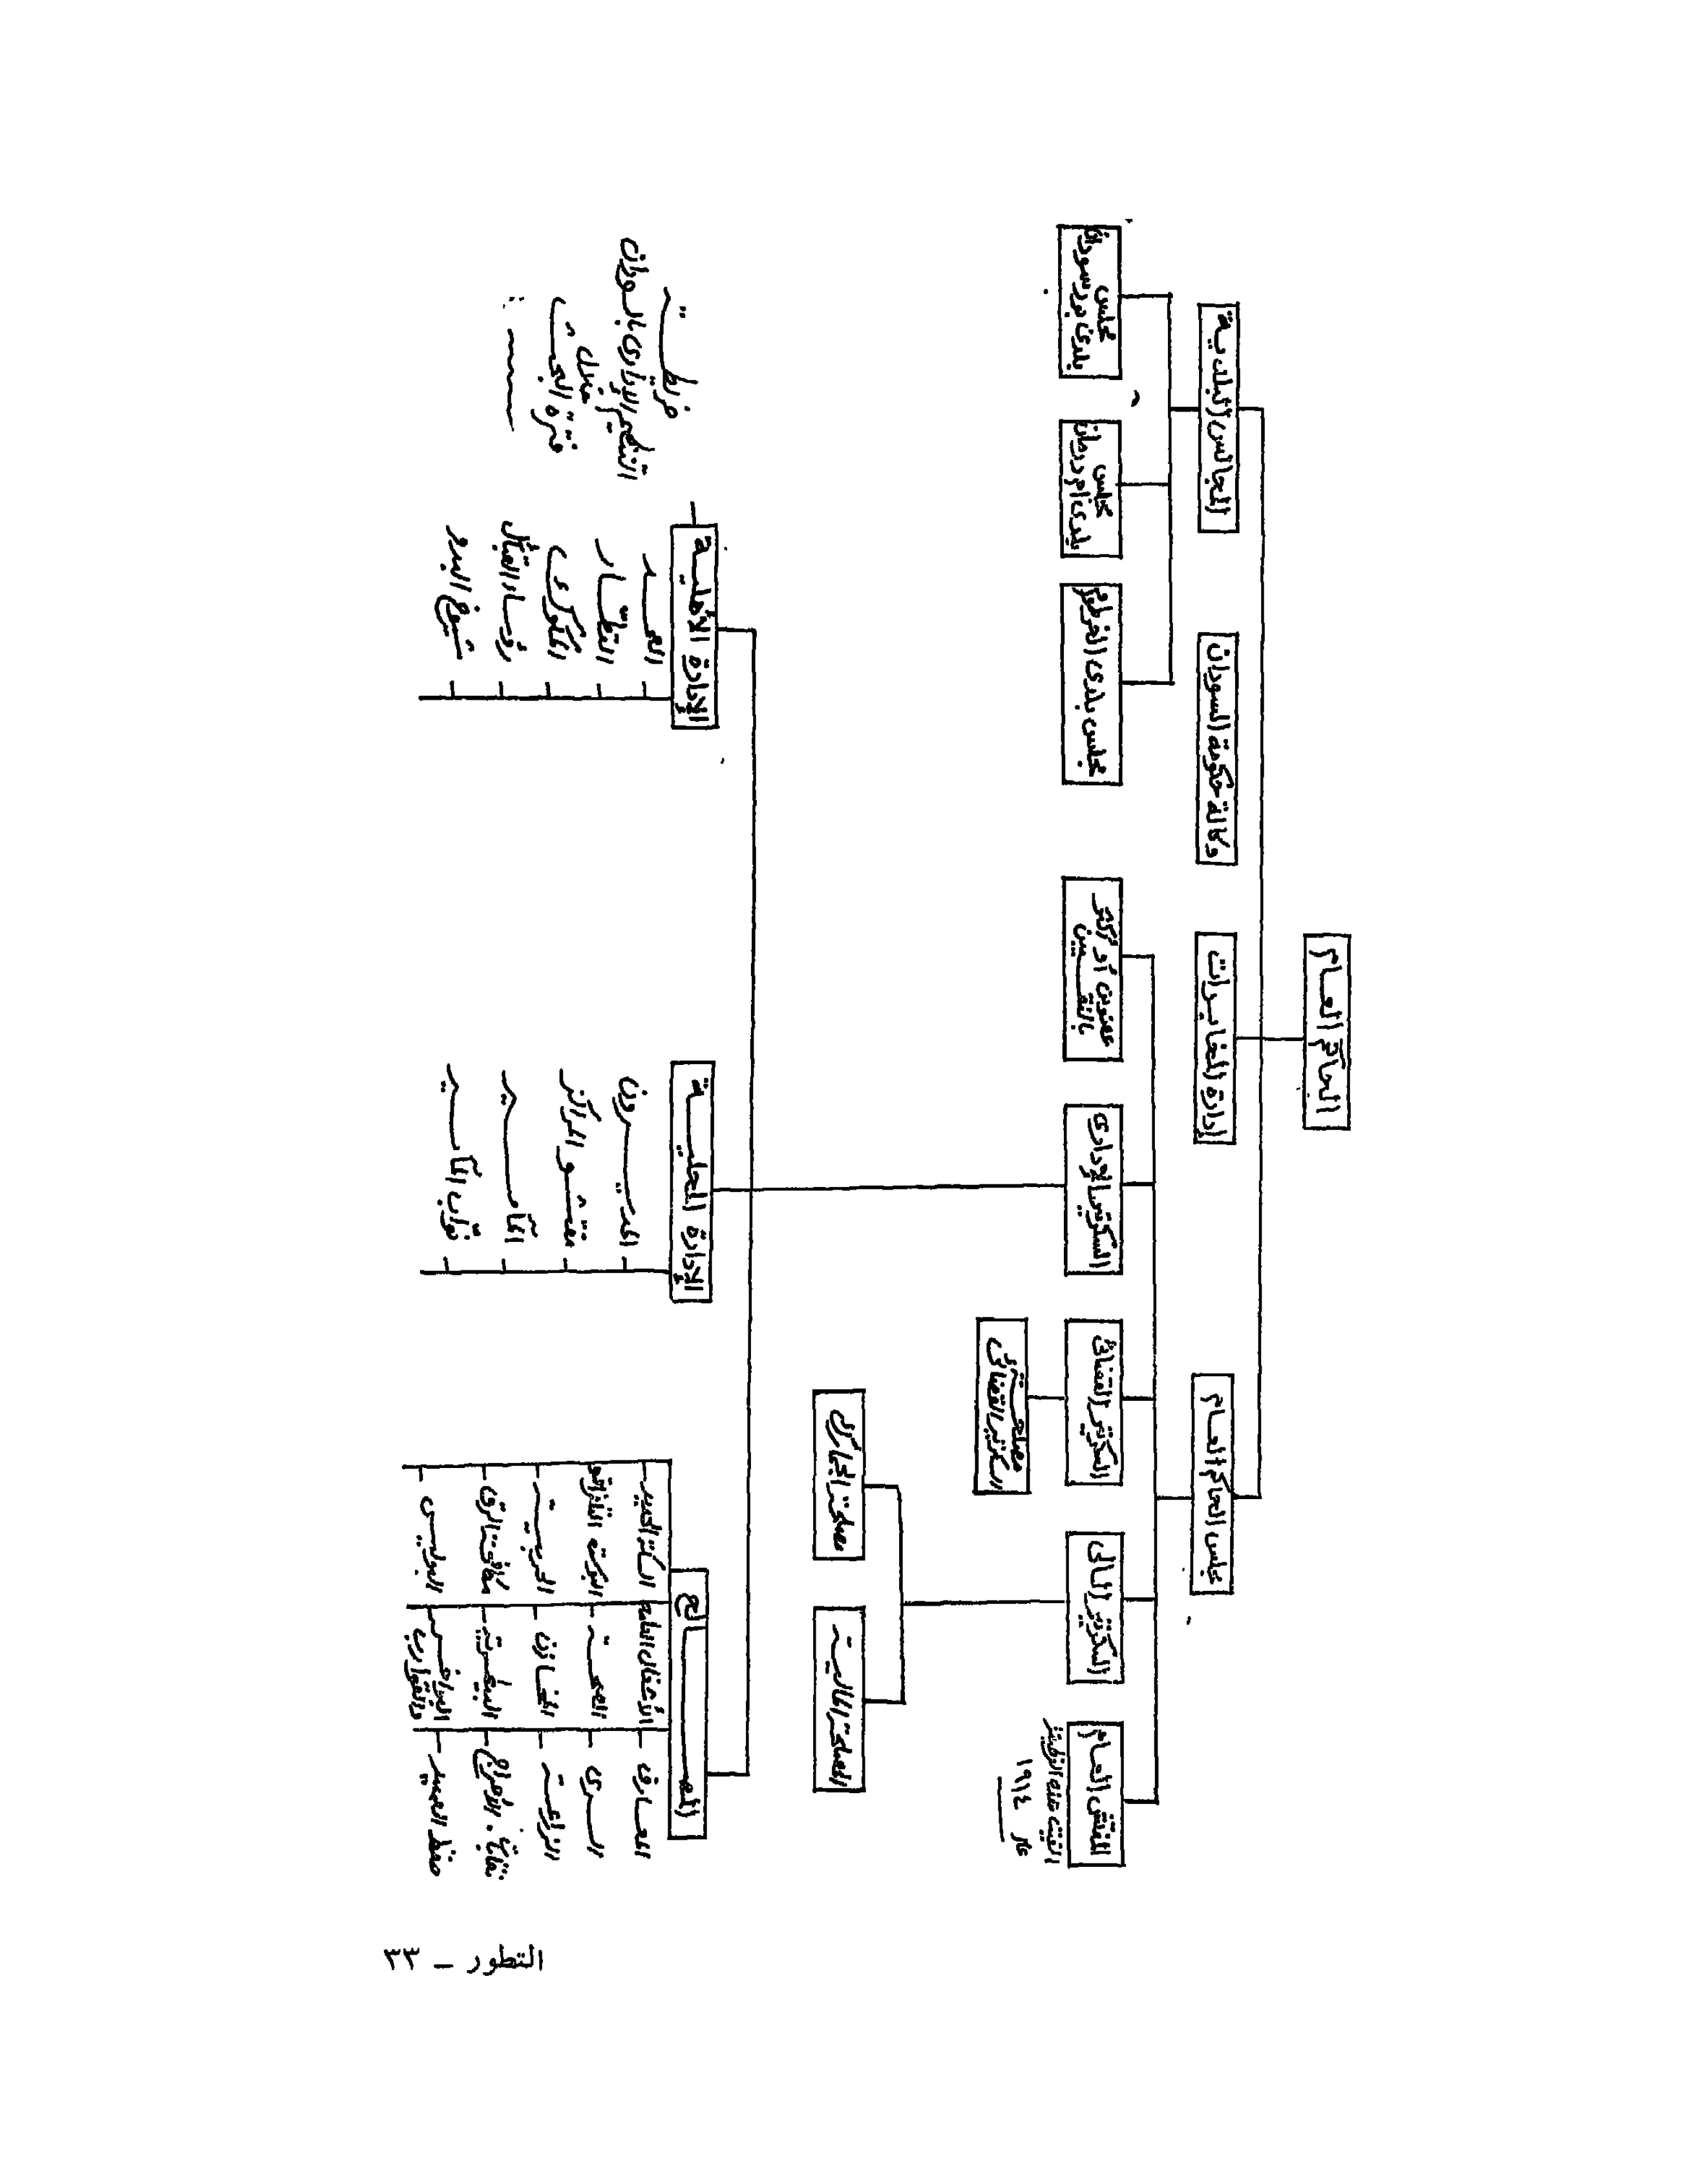 الحاكم العام
مجلس الحاكم العام
إدارة المخابرات
وكالة حكومة السودان
المجالس البلدية
المفتش العام
ألغيت هذه الوظيفة
عام ١٩١٤
السكرتير المالى
السكرتير القضائى
السكرتير الإدارى
عضوين أو أكثر
بالتعيين
مجلس بلدى الخرطوم
مجلس
بلدى أم درمان
مجلس
بلدى بورسودان
مصلحة
السكرتير القضائى
المصلحة المالية
مصلحة الجمارك
المصالح
المعارف
الرى
الزراعة
الغابات
حفظ الصيد
الأشغال العامة
الصحة
المخازن
البيطرية
المراكب
والقوارب
السكة الحديد
البوستة والتلغراف
الحربية
مكافحة الرق
البوليس
الإدارة المحلية
المديرون
مفتشو المراكز
المآمير
نواب المآمير
الإدارة الأهلية
العمد
النظار
المكوك
رؤساء القبائل
شيوخ البدو
خريطة
التنظيم الإدارى بالسودان
خلال
فترة البحث
التطور – ٣٣